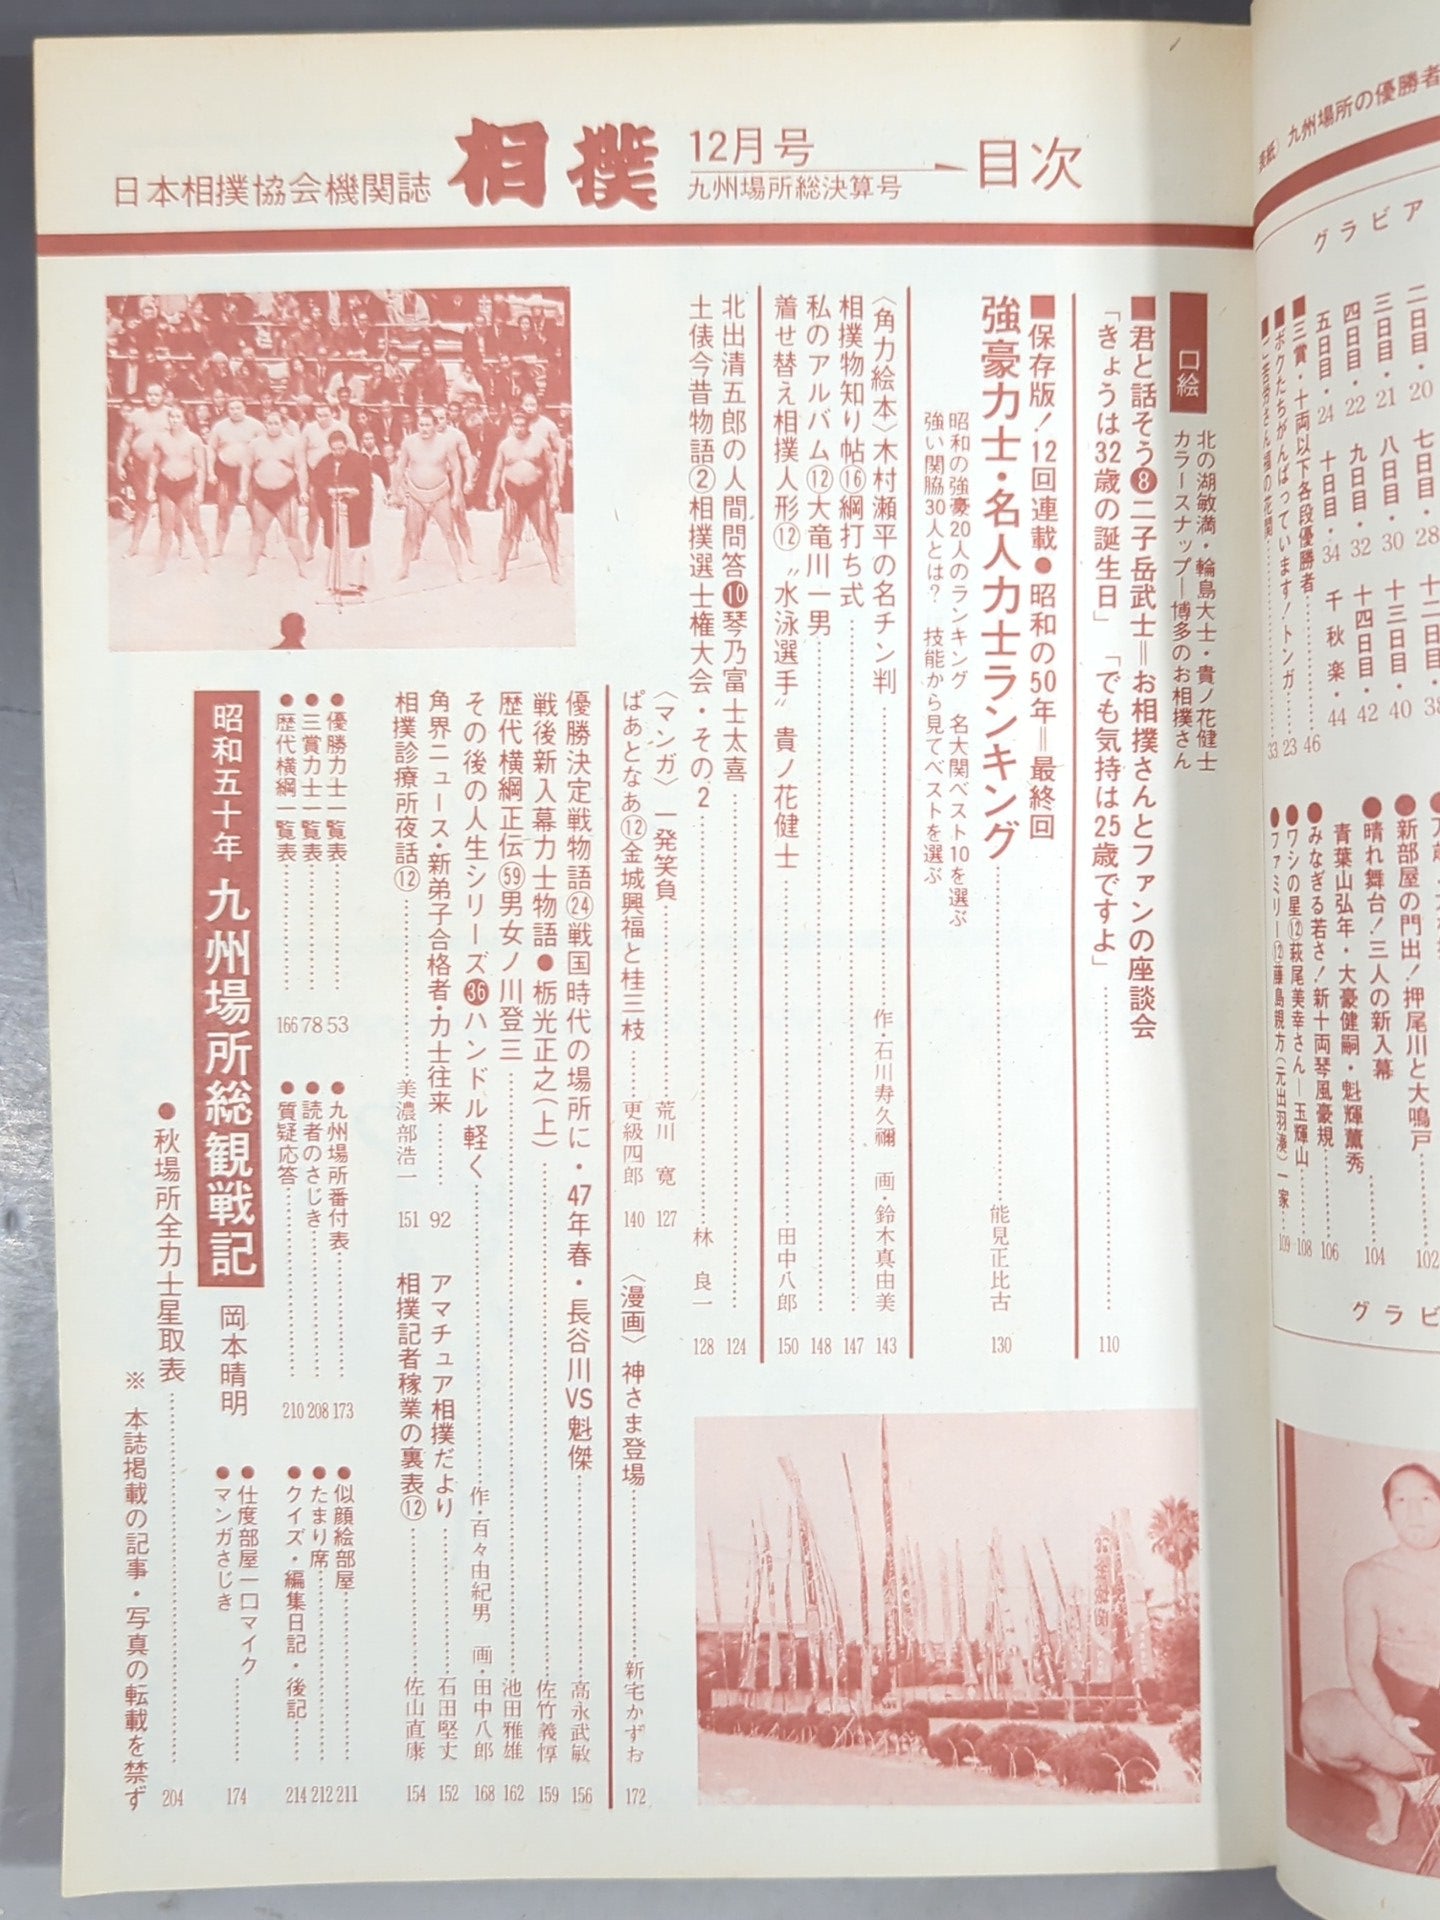 日本相撲協会機関誌 相撲 12月号 九州場所総決算号 目次
口絵
北の湖敏満・輪島大士・貴ノ花健士
カラースナップ―博多のお相撲さん
■君と話そう❽二子岳武士＝お相撲さんとファンの座談会
「きょうは32歳の誕生日」「でも気持は25歳ですよ」…………110
■保存版！12回連載●昭和の50年＝最終回
強豪力士・名人力士ランキング…………能見正比古 130
昭和の強豪20人のランキング 名大関ベスト10を選ぶ
強い関脇30人とは？ 技能から見てベストを選ぶ
〈角力絵本〉木村瀬平の名チン判…………作・石川寿久禰 画・鈴木真由美 143
相撲物知り帖⑯綱打ち式…………147
私のアルバム⑫大竜川一男…………148
着せ替え相撲人形⑫〝水泳選手〟貴ノ花健士…………田中八郎 150
北出清五郎の人間問答❿琴乃富士太喜…………124
土俵今昔物語②相撲選士権大会・その2…………林 良一 128
〈マンガ〉一発笑負…………荒川 寛 127
ぱあとなあ⑫金城興福と桂三枝……更級四郎 140
〈漫画〉神さま登場…………新宅かずお 172
優勝決定戦物語㉔戦国時代の場所に・47年春・長谷川VS魁傑…………高永武敏 156
戦後新入幕力士物語●栃光正之(上)…………佐竹義惇 159
歴代横綱正伝㊾男女ノ川登三…………池田雅雄 162
その後の人生シリーズ㊱ハンドル軽く…………作・百々由紀男 画・田中八郎 168
角界ニュース・新弟子合格者・力士往来……92
アマチュア相撲だより…………石田堅丈 152
相撲診療所夜話⑫…………美濃部浩一 151
相撲記者稼業の裏表⑫…………佐山直康 154
●優勝力士一覧表…………53
●三賞力士一覧表…………78
●歴代横綱一覧表…………166
●九州場所番付表…………173
●読者のさじき…………208
●質疑応答…………210
●似顔絵部屋…………211
●たまり席…………212
●クイズ・編集日記・後記……214
昭和五十年 九州場所総観戦記 岡本晴明
●仕度部屋一口マイク…………174
●マンガさじき
●秋場所全力士星取表…………204
※ 本誌掲載の記事・写真の転載を禁ず
九州場所の優勝者
グラビア
二日目・20
三日目・21
四日目・22
五日目・24
七日目・28
八日目・30
九日目・32
十日目・34
十二日目・38
十三日目・40
十四日目・42
千秋楽・44
■三賞・十両以下各段優勝者…………46
■ボクたちがんばっています！トンガ……23
33
●新部屋の門出！押尾川と大鳴戸……102
●晴れ舞台！三人の新入幕
青葉山弘年・大豪健嗣・魁輝薫秀……104
●みなぎる若さ！新十両琴風豪規……106
●ワシの星⑫萩尾美幸さん―玉輝山……108
●ファミリー⑫藤島親方(元出羽湊)一家…109
グラビ